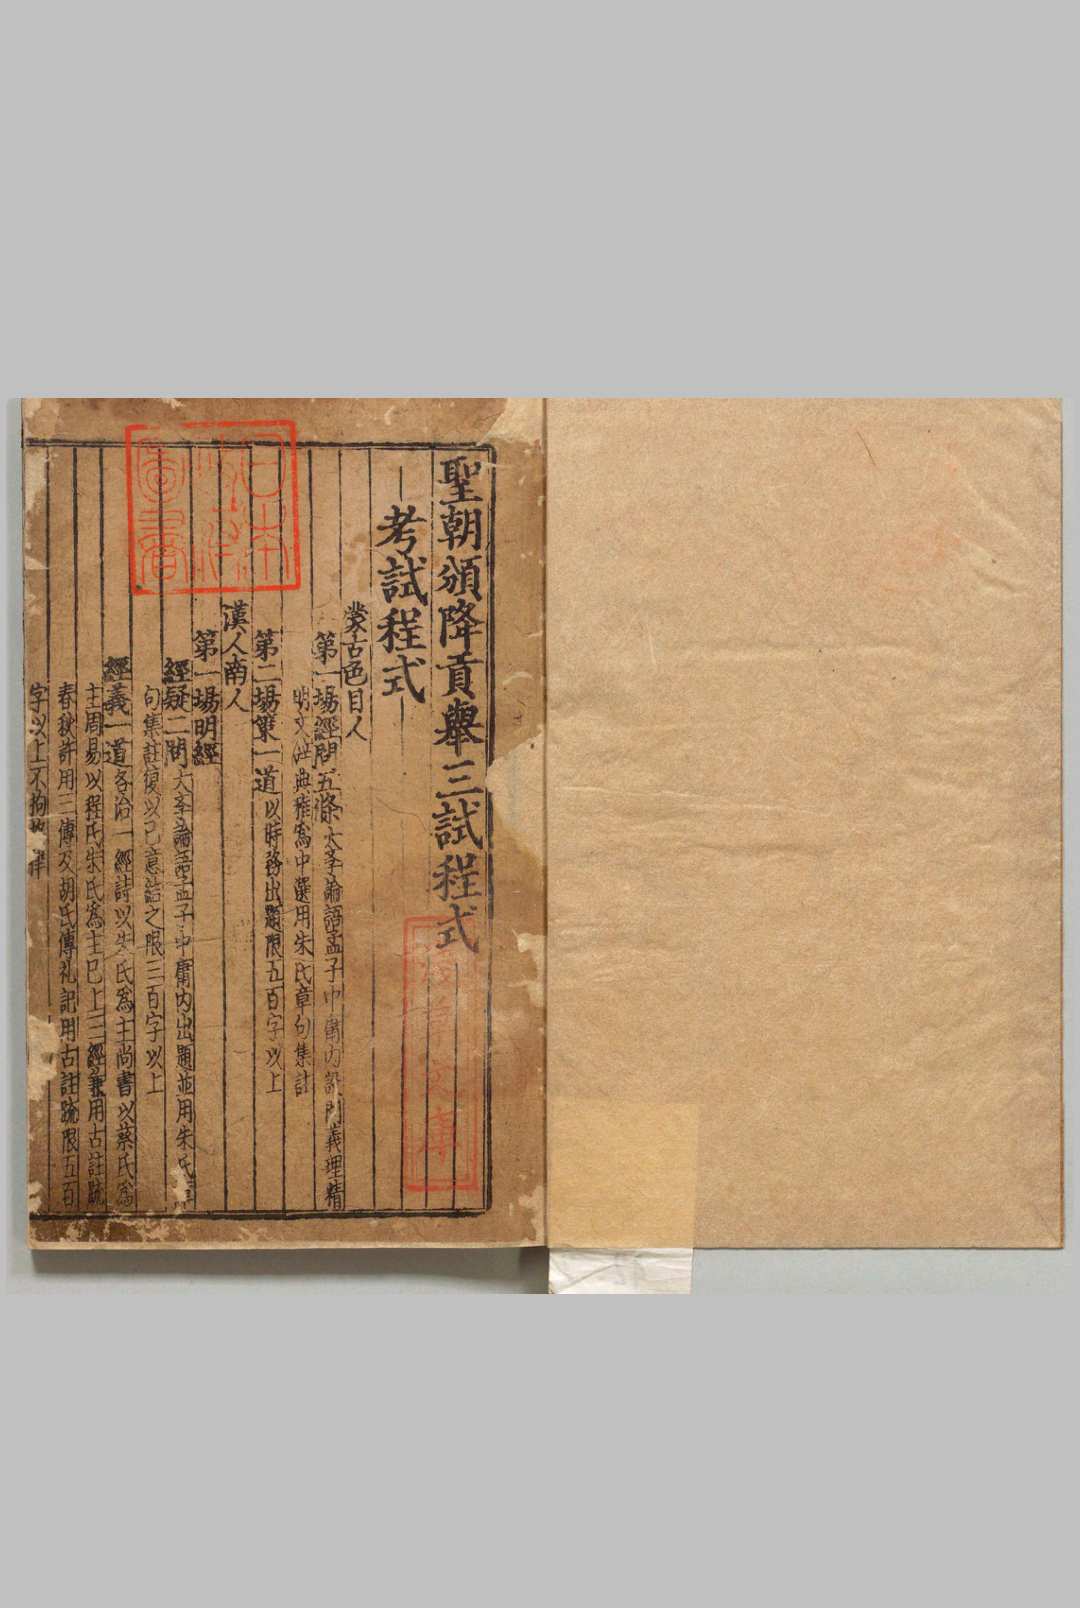 聖朝頒降貢舉三試程式
考試程式
蒙古色目人
第一場經問五條大李論語孟子中庸内設問義理精
明文辞典雅爲中選用朱氏章句集註
第二場策一道以時務出題限五百字以上
漢人南人
第一場明經
經疑二問大李論語孟子中庸内出題並用朱氏章
句集註復以己意結之限三百字以上
經義一道各治一經詩以朱氏爲主尚書以蔡氏爲
主周易以程氏朱氏爲主已上三經兼用古註疏
春秋許用三傳及胡氏傳礼記用古註疏限五百
字以上不拘格律
日本
圖書
文庫